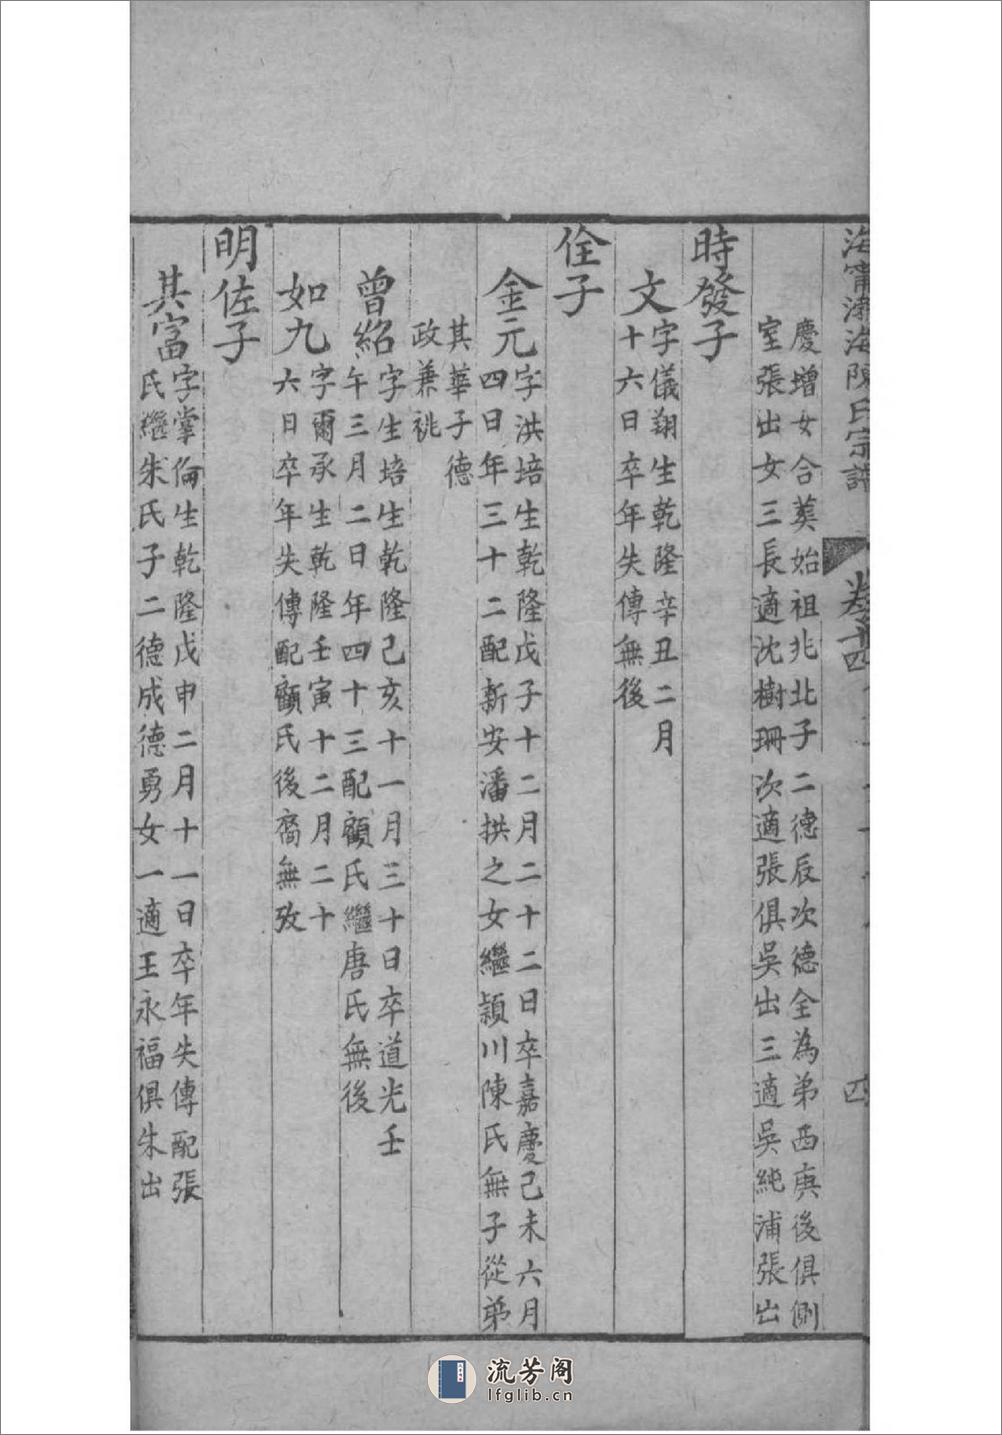 海甯渤海陳氏宗譜 卷十四 四
慶增女合葬始祖兆北子二德辰次德全為弟西庚後俱側
室張出女三長適沈樹珊次適張俱吳出三適吳純浦張出
時發子
文
字儀翔生乾隆辛丑二月
十六日卒年失傳無後
佺子
金元
字洪培生乾隆戊子十二月二十二日卒嘉慶己未六月
四日年三十二配新安潘拱之女繼潁川陳氏無子從弟
其華子德
政兼祧
曾紹
字生培生乾隆己亥十一月三十日卒道光壬
午三月二日年四十三配顧氏繼唐氏無後
如九
字爾承生乾隆壬寅十二月二十
六日卒年失傳配顧氏後裔無攷
明佐子
其富
字掌倫生乾隆戊申二月十一日卒年失傳配張
氏繼朱氏子二德成德勇女一適王永福俱朱出
流芳阁
lfglib.cn